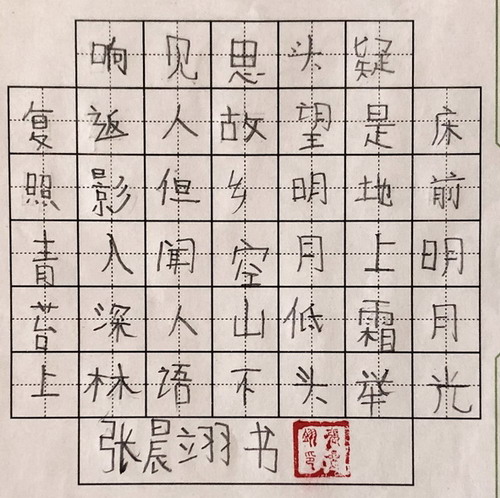 床前明月光
疑是地上霜举
头望明月低头
思故乡空山不
见人但闻人语
响返影入深林
复照青苔上
张晨翊书